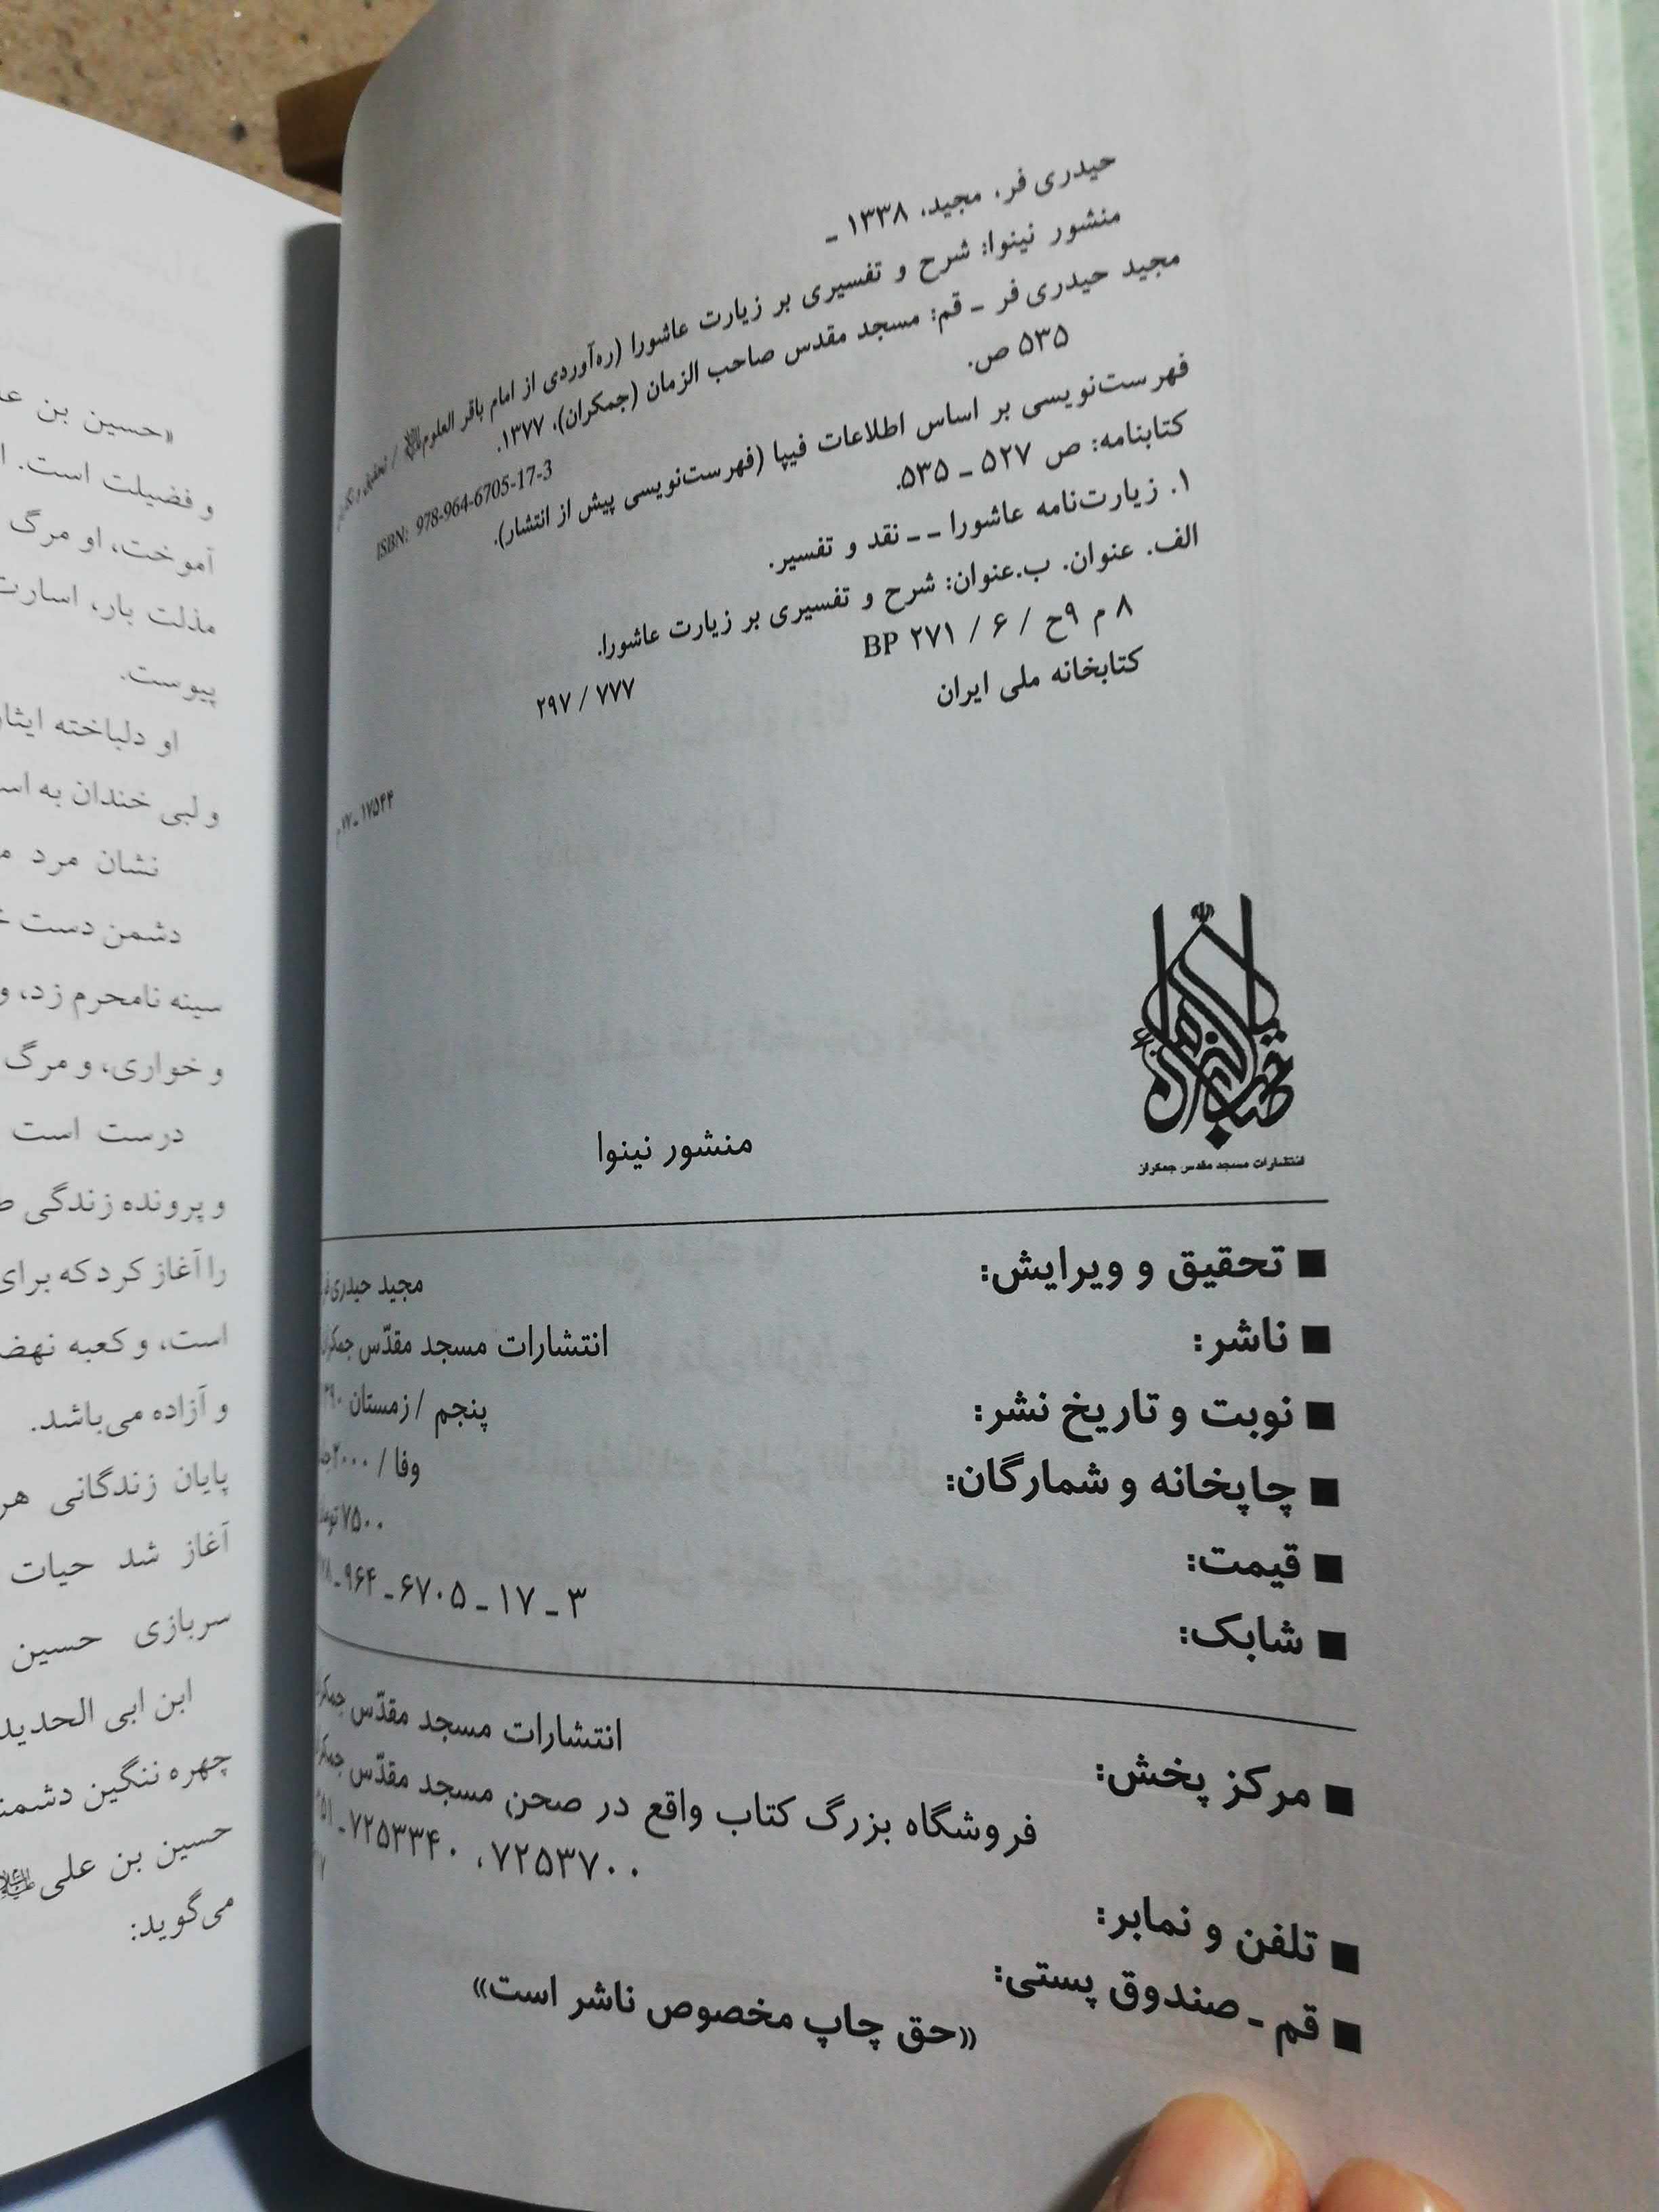 حیدری فر، مجید، ۱۳۳۸ ـ
منشور نینوا: شرح و تفسیری بر زیارت عاشورا (ره‌آوردی از امام باقر العلوم / تحقیق و
مجید حیدری فر ـ قم: مسجد مقدس صاحب الزمان (جمکران)، ۱۳۷۷.
۵۳۵ ص.
ISBN: 978-964-6705-17-3
فهرست‌نویسی بر اساس اطلاعات فیپا (فهرست‌نویسی پیش از انتشار).
کتابنامه: ص ۵۲۷ ـ ۵۳۵.
۱. زیارت‌نامه عاشورا ـ ـ نقد و تفسیر.
الف. عنوان. ب.عنوان: شرح و تفسیری بر زیارت عاشورا.
۸ م ۹ح / ۶ / BP ۲۷۱
کتابخانه ملی ایران
۲۹۷ / ۷۷۷
۱۷۵۴۴ ـ ۷۷م
انتشارات مسجد مقدس جمکران
منشور نینوا
■ تحقیق و ویرایش: مجید حیدری
■ ناشر: انتشارات مسجد مقدّس جمکران
■ نوبت و تاریخ نشر: پنجم / زمستان
■ چاپخانه و شمارگان: وفا / ۲۰۰۰
■ قیمت: ۷۵۰۰
■ شابک: ۳ ـ ۱۷ ـ ۶۷۰۵ ـ ۹۶۴ ـ
■ مرکز پخش: انتشارات مسجد مقدّس
فروشگاه بزرگ کتاب واقع در صحن مسجد مقدّس
■ تلفن و نمابر: ۷۲۵۳۷۰۰ ، ۷۲۵۳۳۴۰ ـ
■ قم ـ صندوق پستی:
«حق چاپ مخصوص ناشر است»
«حسین بن
و فضیلت است.
آموخت، او مرگ
مذلت بار، اسارت
پیوست.
او دلباخته
و لبی خندان به
نشان مرد
دشمن دست
سینه نامحرم زد، و
و خواری، و مرگ
درست است
و پرونده زندگی
را آغاز کرد که برای
است، و کعبه
و آزاده می‌باشد.
پایان زندگانی هر
آغاز شد حیات
سربازی حسین
ابن ابی الحدید
چهره ننگین
حسین بن علی
می‌گوید: